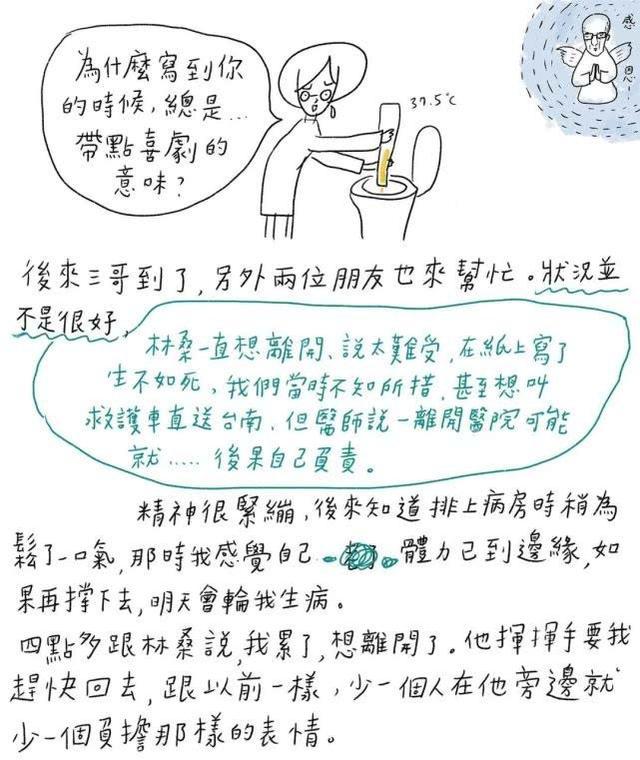 為什麼寫到你
的時候，總是…
帶點喜劇的
意味？
37.5°C
感恩
後來三哥到了，另外兩位朋友也來幫忙。狀況並
不是很好，
林桑一直想離開、說太難受，在紙上寫了
生不如死，我們當時不知所措，甚至想叫
救護車直送台南，但醫師說一離開醫院可能
就.....後果自己負責。
精神很緊繃，後來知道排上病房時稍為
鬆了一口氣，那時我感覺自己 體力已到邊緣，如
果再撐下去，明天會輪我生病。
四點多跟林桑說，我累了，想離開了。他揮揮手要我
趕快回去，跟以前一樣，少一個人在他旁邊就
少一個負擔那樣的表情。